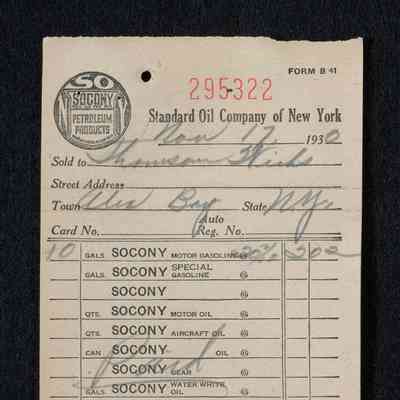 FORM B 41
295322
SO
SOCONY
PETROLEUM
PRODUCTS
Standard Oil Company of New York
Nov 17 1930
Sold to Thomson Hicks
Street Address
Town Alex Bay State N.Y.
Card No. Auto Reg. No.
10 GALS. SOCONY MOTOR GASOLINE @ 202
GALS. SOCONY SPECIAL GASOLINE @
SOCONY @
QTS. SOCONY MOTOR OIL @
QTS. SOCONY AIRCRAFT OIL @
CAN SOCONY OIL @
SOCONY GEAR @
Paid
GALS. SOCONY WATER WHITE OIL @